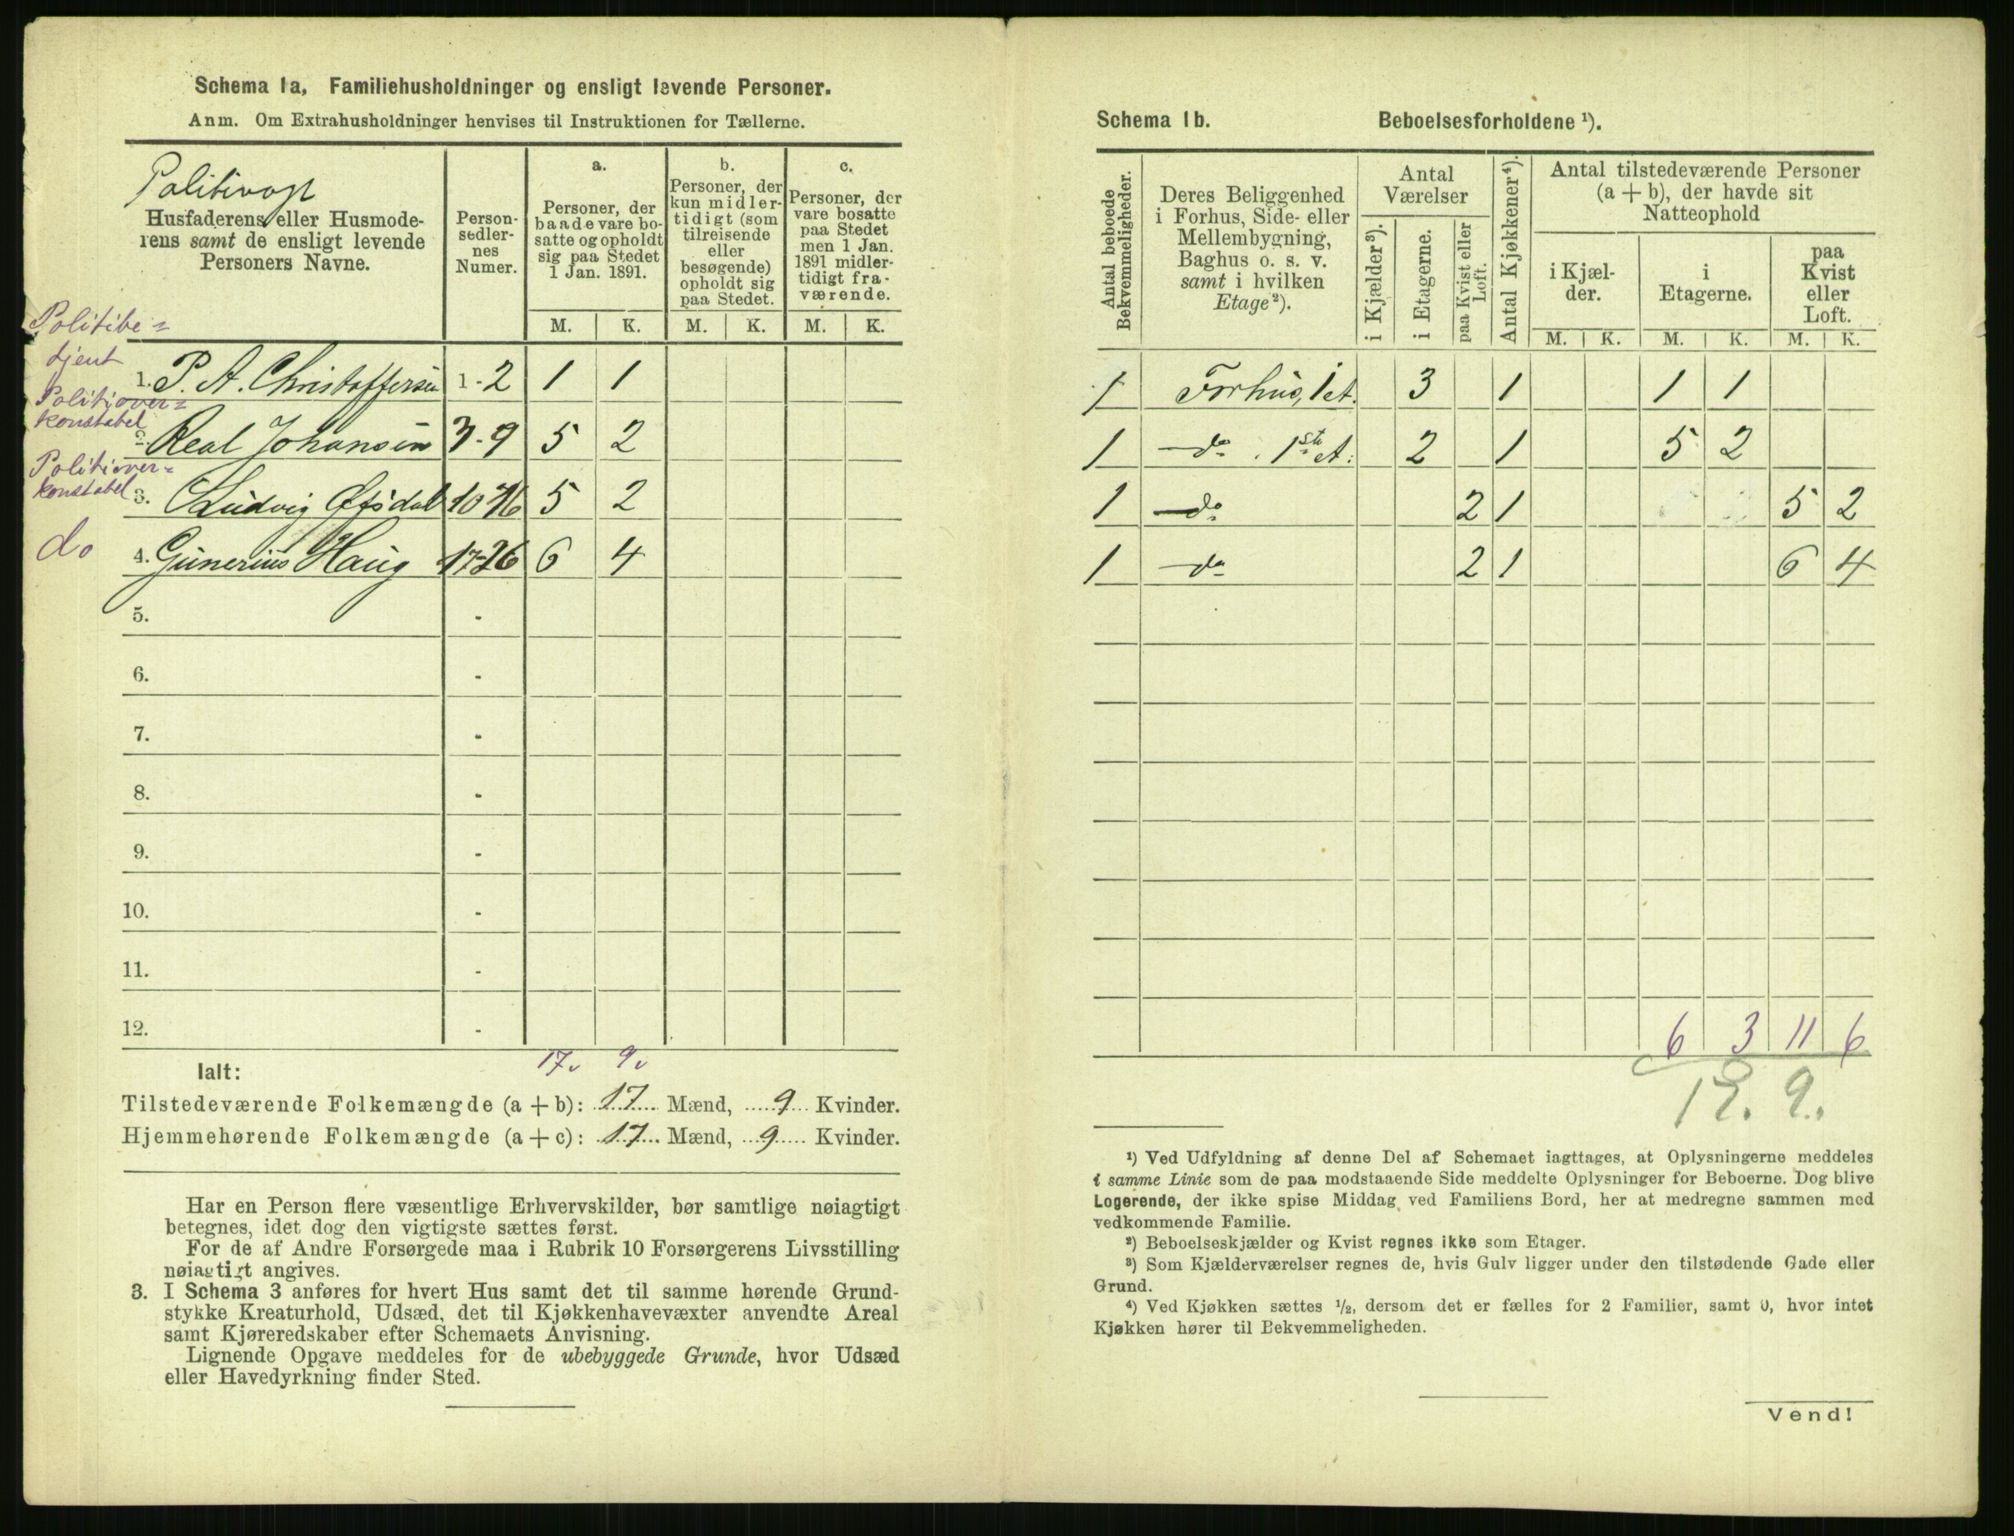 Schema 1a, Familiehusholdninger og ensligt levende Personer.
Anm. Om Extrahusholdninger henvises til Instruktionen for Tællerne.
Politivagt
Husfaderens eller Husmode-
rens samt de ensligt levende
Personers Navne.
Person-
sedler-
nes
Numer.
a.
Personer, der
baade vare bo-
satte og opholdt
sig paa Stedet
1 Jan. 1891.
b.
Personer, der
kun midler-
tidigt (som
tilreisende
eller
besøgende)
opholdt sig
paa Stedet.
c.
Personer, der
vare bosatte
paa Stedet
men 1 Jan.
1891 midler-
tidigt fra-
værende.
M. K. M. K. M. K.
Politibe=
tjent
1. P. A. Christoffersen 1-2 1 1
Politiover=
konstabel
2. Real Johansen 3-9 5 2
Politiover=
konstabel
3. Ludvig Ofsdal 10-16 5 2
do
4. Gunerius Haug 17-26 6 4
5. -
6. -
7. -
8. -
9. -
10. -
11. -
12. -
17. 9.
Ialt:
Tilstedeværende Folkemængde (a + b): 17 Mænd, 9 Kvinder.
Hjemmehørende Folkemængde (a + c): 17 Mænd, 9 Kvinder.
Har en Person flere væsentlige Erhvervskilder, bør samtlige nøiagtigt
betegnes, idet dog den vigtigste sættes først.
For de af Andre Forsørgede maa i Rubrik 10 Forsørgerens Livsstilling
nøiagtigt angives.
3. I Schema 3 anføres for hvert Hus samt det til samme hørende Grund-
stykke Kreaturhold, Udsæd, det til Kjøkkenhavevæxter anvendte Areal
samt Kjøreredskaber efter Schemaets Anvisning.
Lignende Opgave meddeles for de ubebyggede Grunde, hvor Udsæd
eller Havedyrkning finder Sted.
Schema 1b. Beboelsesforholdene ¹).
Antal beboede
Bekvemmeligheder.
Deres Beliggenhed
i Forhus, Side- eller
Mellembygning,
Baghus o. s. v.
samt i hvilken
Etage²).
Antal
Værelser
i Kjælder³).
i Etagerne.
paa Kvist eller
Loft.
Antal Kjøkkener⁴).
Antal tilstedeværende Personer
(a + b), der havde sit
Natteophold
i Kjæl-
der.
i
Etagerne.
paa
Kvist
eller
Loft.
M. K. M. K. M. K.
1 Forhus, 1 et. 3 1 1 1
1 do. 1ste Et. 2 1 5 2
1 do 2 1 5 2
1 do 2 1 6 4
6 3 11 6
17. 9.
¹) Ved Udfyldning af denne Del af Schemaet iagttages, at Oplysningerne meddeles
i samme Linie som de paa modstaaende Side meddelte Oplysninger for Beboerne. Dog blive
Logerende, der ikke spise Middag ved Familiens Bord, her at medregne sammen med
vedkommende Familie.
²) Beboelseskjælder og Kvist regnes ikke som Etager.
³) Som Kjælderværelser regnes de, hvis Gulv ligger under den tilstødende Gade eller
Grund.
⁴) Ved Kjøkken sættes ½, dersom det er fælles for 2 Familier, samt 0, hvor intet
Kjøkken hører til Bekvemmeligheden.
Vend!